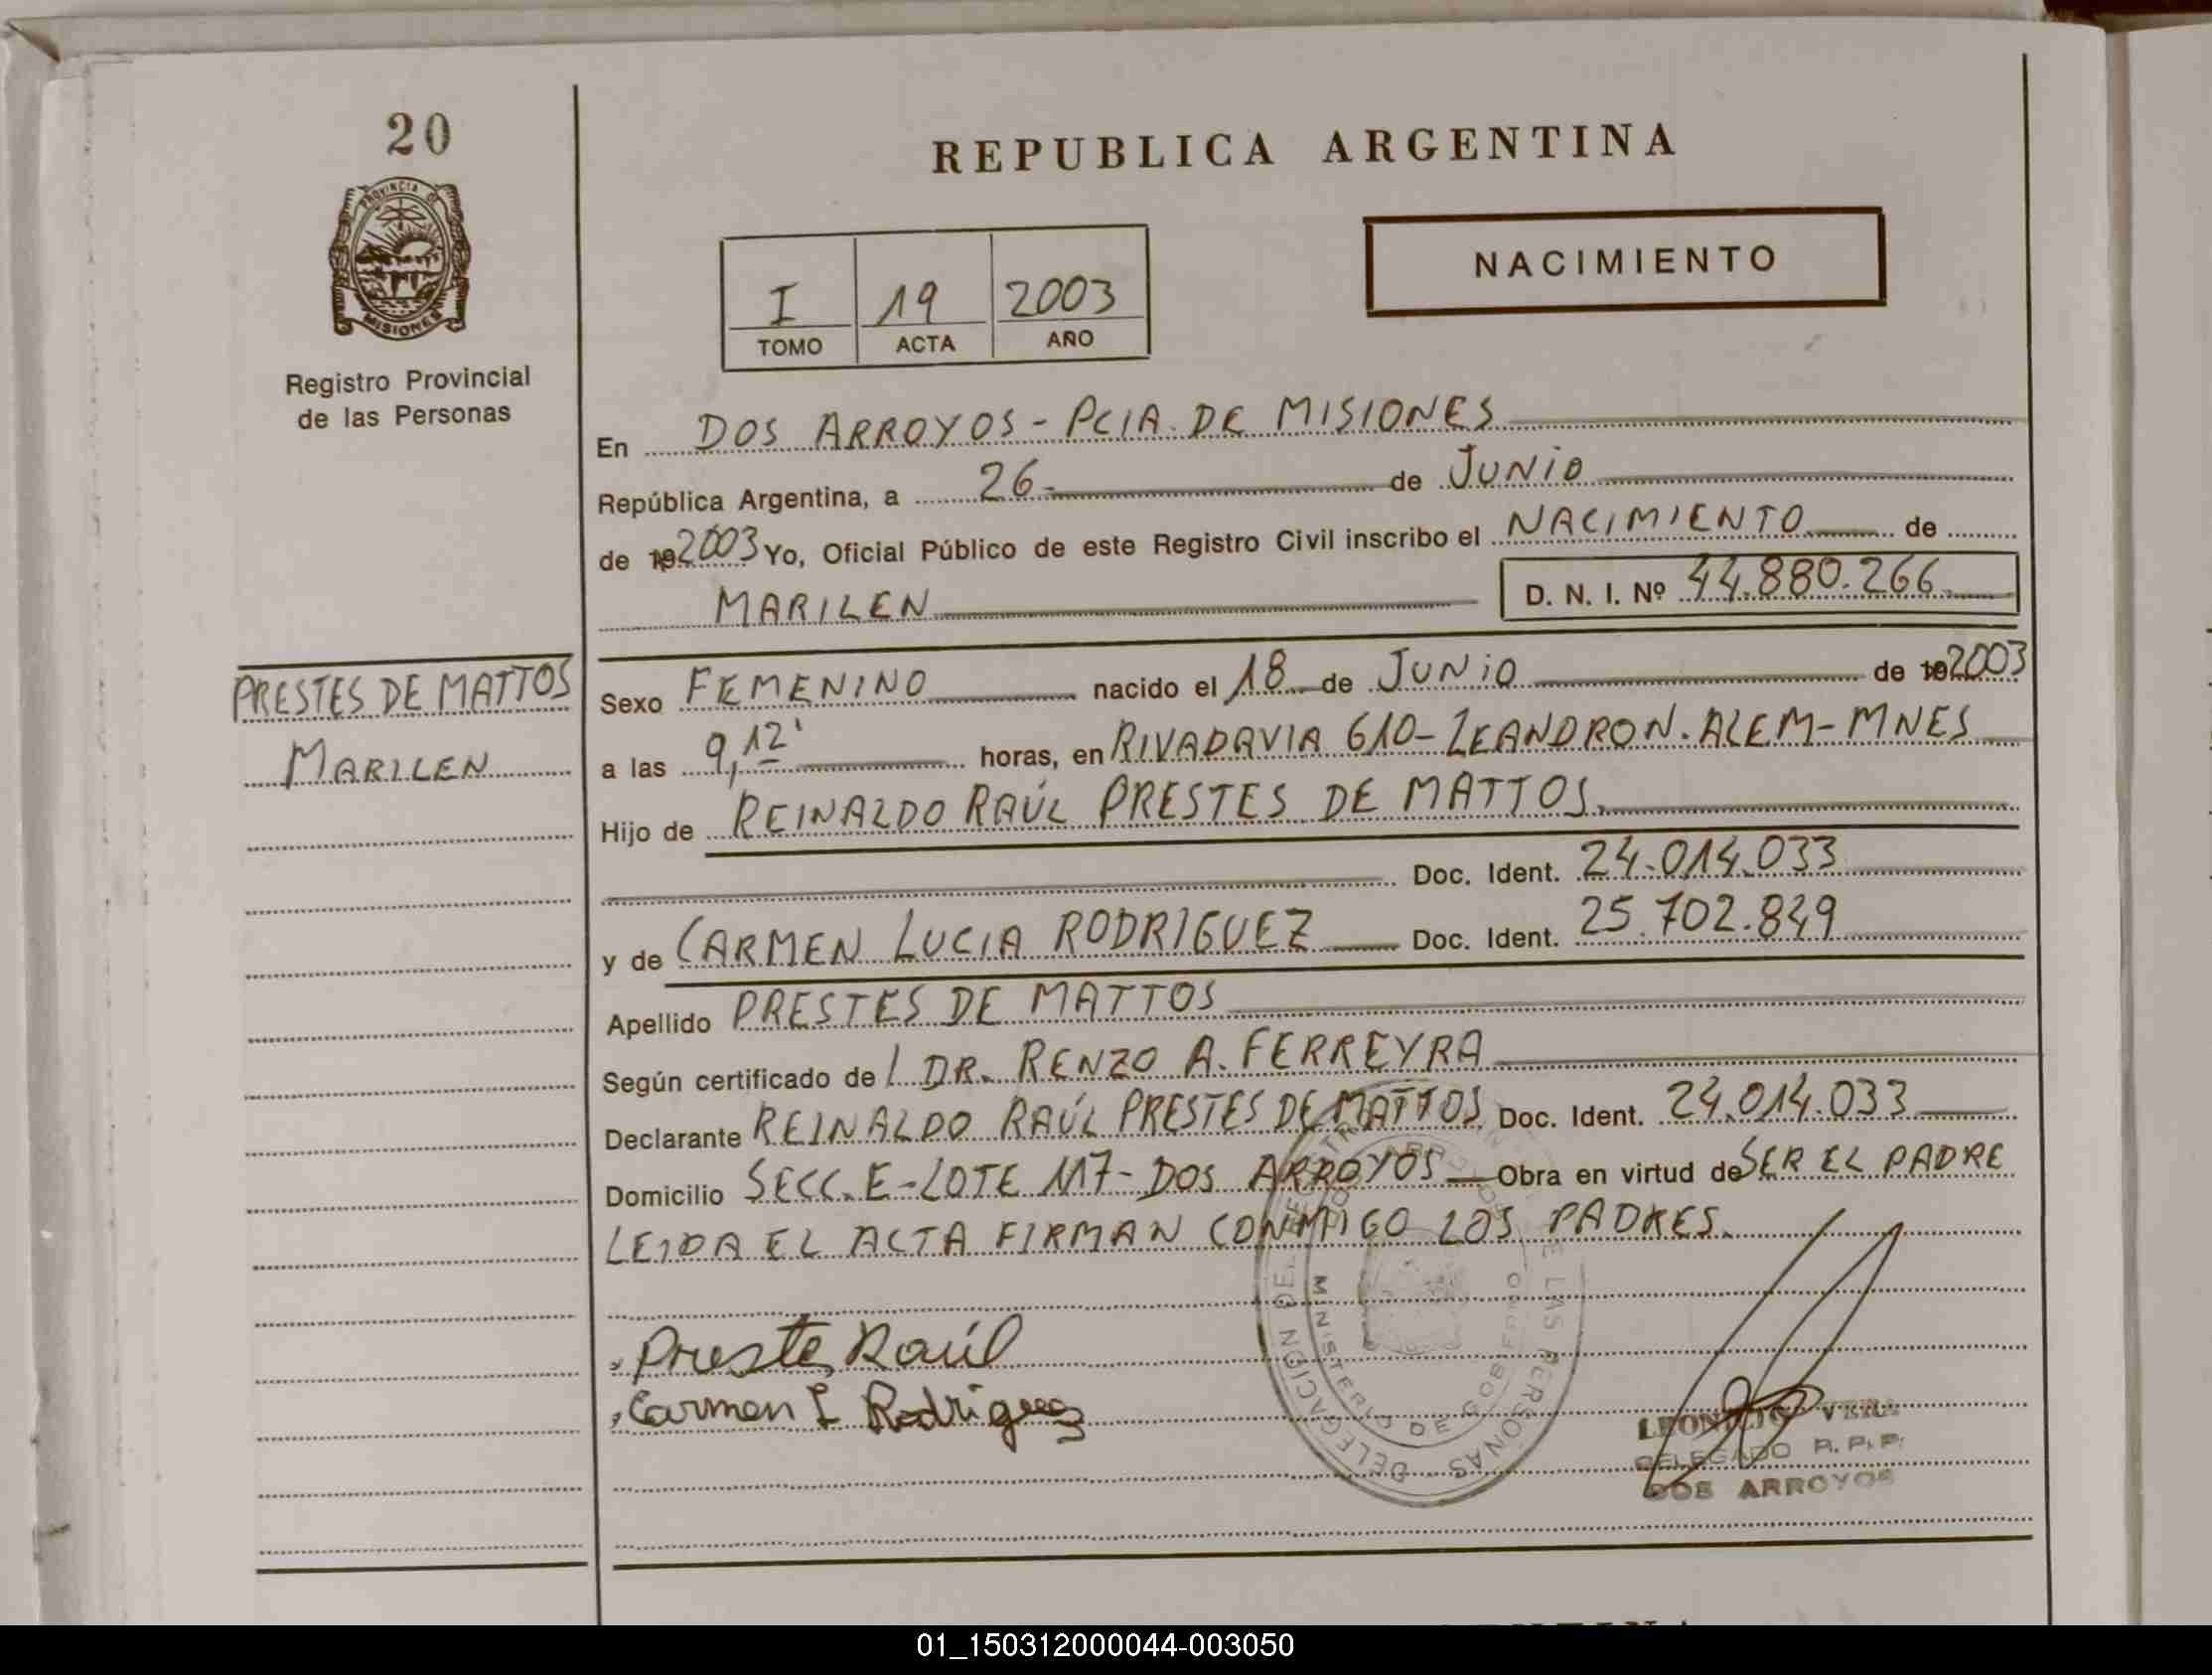 20
PROVINCIA DE
MISIONES
Registro Provincial
de las Personas
REPUBLICA ARGENTINA
I 19 2003
TOMO ACTA AÑO
NACIMIENTO
En DOS ARROYOS - PCIA. DE MISIONES
República Argentina, a 26- de JUNIO
de 192003 Yo, Oficial Público de este Registro Civil inscribo el NACIMIENTO de
MARILEN D. N. I. Nº 44.880.266
PRESTES DE MATTOS
MARILEN
Sexo FEMENINO nacido el 18 de JUNIO de 192003
a las 9,12' horas, en RIVADAVIA 610- LEANDRO N. ALEM-MNES
Hijo de REINALDO RAÚL PRESTES DE MATTOS.
Doc. Ident. 24.014.033
y de CARMEN LUCIA RODRIGUEZ Doc. Ident. 25.702.849
Apellido PRESTES DE MATTOS
Según certificado del DR. RENZO A. FERREYRA
Declarante REINALDO RAÚL PRESTES DE MATTOS Doc. Ident. 24.014.033
Domicilio SECC. E-LOTE 117- DOS ARROYOS Obra en virtud de SER EL PADRE
LEIDA EL ACTA FIRMAN CONMIGO LOS PADRES.
Preste Raúl
Carmen L Rodriguez
DELEGACION DEL REGISTRO DE LAS PERSONAS
MINISTERIO DE GOBIERNO
DOS ARROYOS
VERA
DELEGADO R. P. P.
DOS ARROYOS
01_150312000044-003050